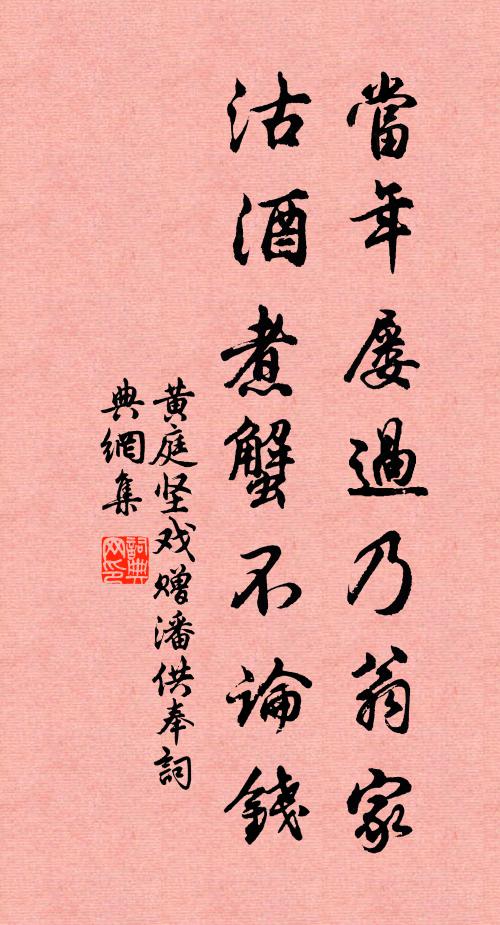 當年屡過乃翁家
沽酒煮蟹不論錢
黄庭坚戏赠潘供奉詞
典網集
詞典
网印